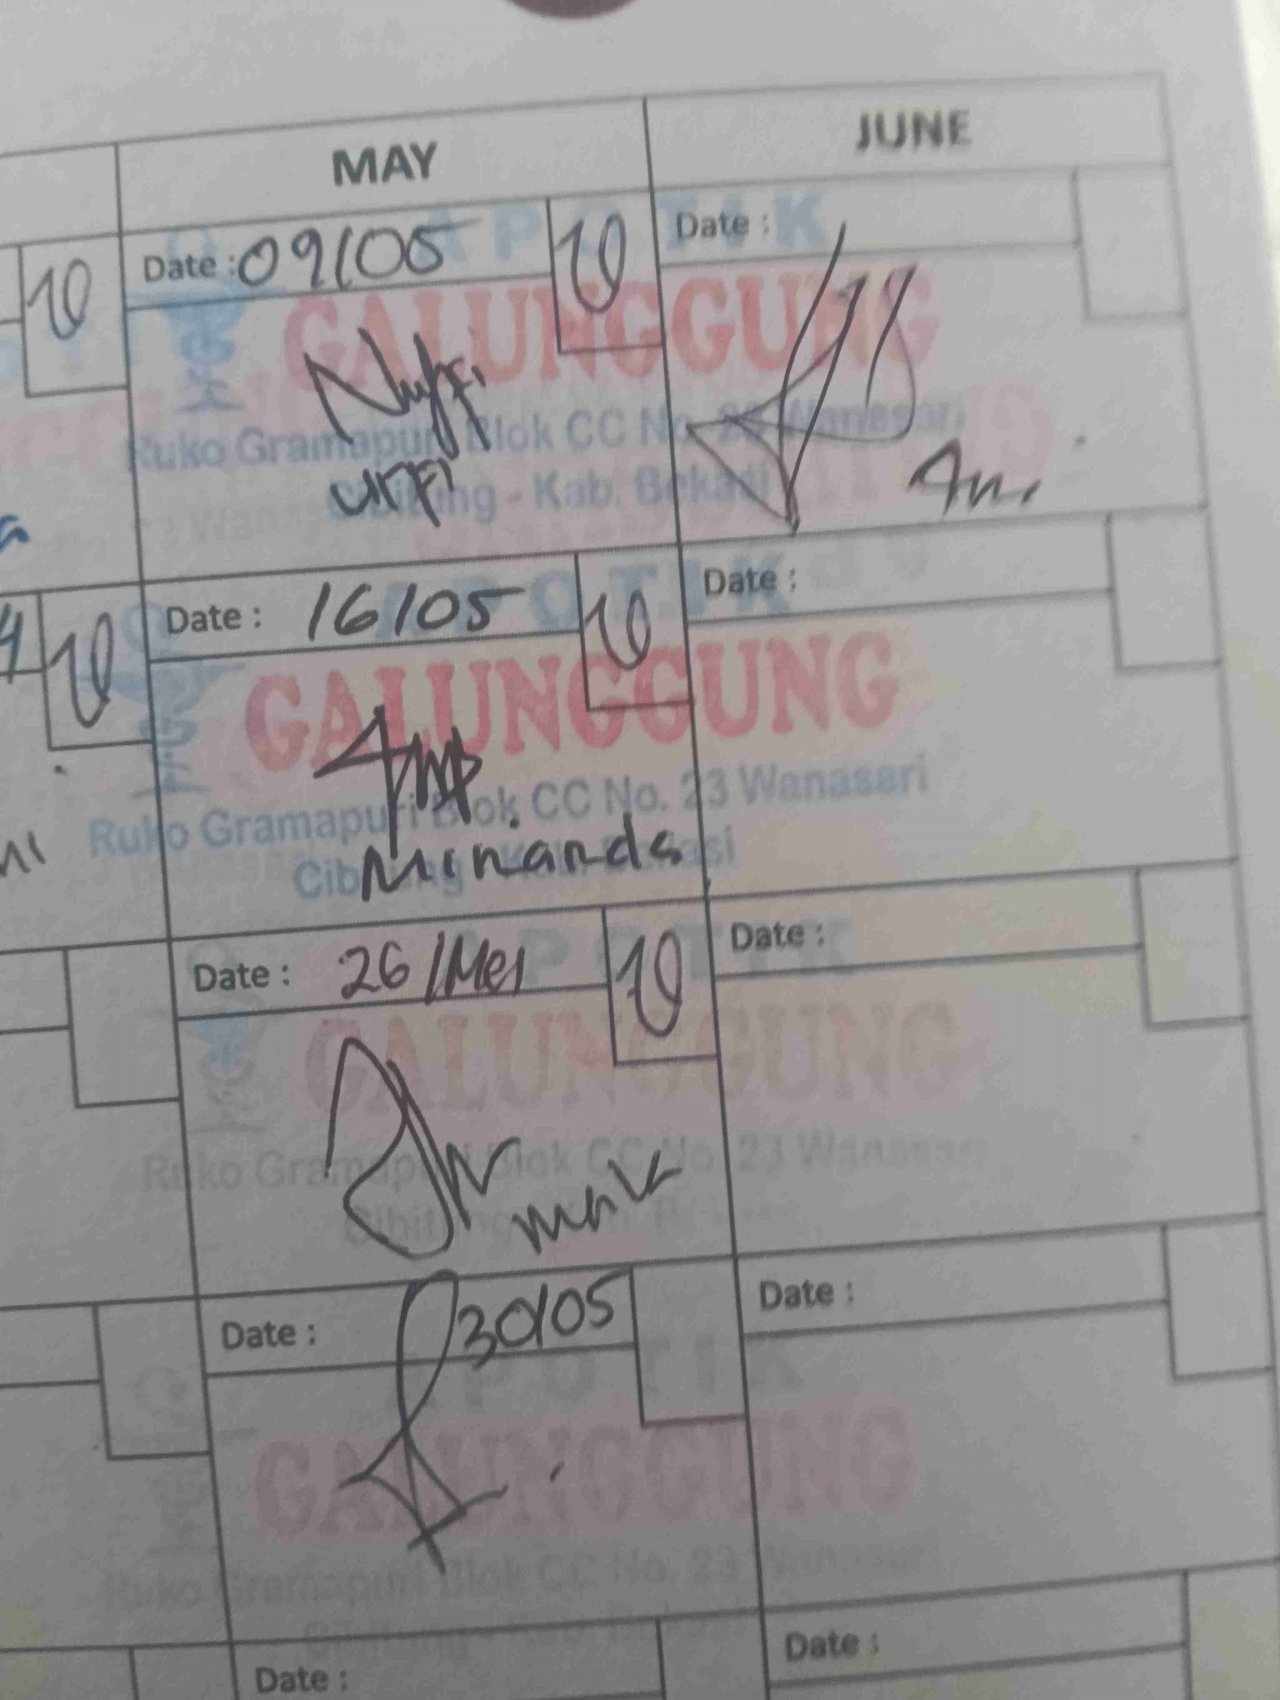 MAY
JUNE
Date : 09/05
10
Date :
10
APOTIK
GALUNGGUNG
Ruko Gramapuri Blok CC No. 23 Wanasari
Cibitung - Kab. Bekasi
Nurfi
urfi
Ani
Date : 16/05
10
Date :
10
APOTIK
GALUNGGUNG
Ruko Gramapuri Blok CC No. 23 Wanasari
Cibitung - Kab. Bekasi
Minanda
Date : 26/Mei
10
Date :
APOTIK
GALUNGGUNG
Ruko Gramapuri Blok CC No. 23 Wanasari
Date : 30/05
Date :
APOTIK
GALUNGGUNG
Ruko Gramapuri Blok CC No. 23 Wanasari
Date :
Date :